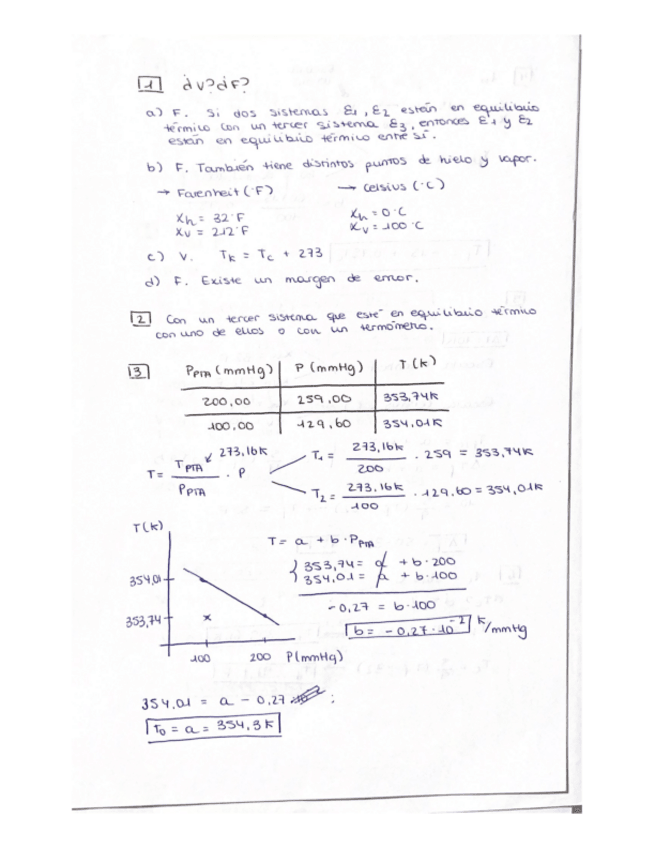 1 ¿V? ¿F?
a) F. Si dos sistemas ε1, ε2 están en equilibrio
térmico con un tercer sistema ε3, entonces ε1 y ε2
están en equilibrio térmico entre sí.
b) F. También tiene distintos puntos de hielo y vapor.
→ Farenheit (°F) → Celsius (°C)
Xh = 32°F Xh = 0°C
Xv = 212°F Xv = 100°C
c) V. TK = Tc + 273
d) F. Existe un margen de error.
2 Con un tercer sistema que esté en equilibrio térmico
con uno de ellos o con un termómetro.
3 PPTA (mmHg) P (mmHg) T (K)
200,00 259,00 353,74K
100,00 129,60 354,01K
T = TPTA / PPTA · P 273,16K T1 = 273,16K / 200 · 259 = 353,74K
T2 = 273,16K / 100 · 129,60 = 354,01K
T(K) T = a + b · PPTA
353,74 = a + b · 200
354,01 = a + b · 100
-0,27 = b · 100
b = -0,27 · 10⁻² K/mmHg
354,01
353,74
100 200 P(mmHg)
354,01 = a - 0,27 ;
T0 = a = 354,3K